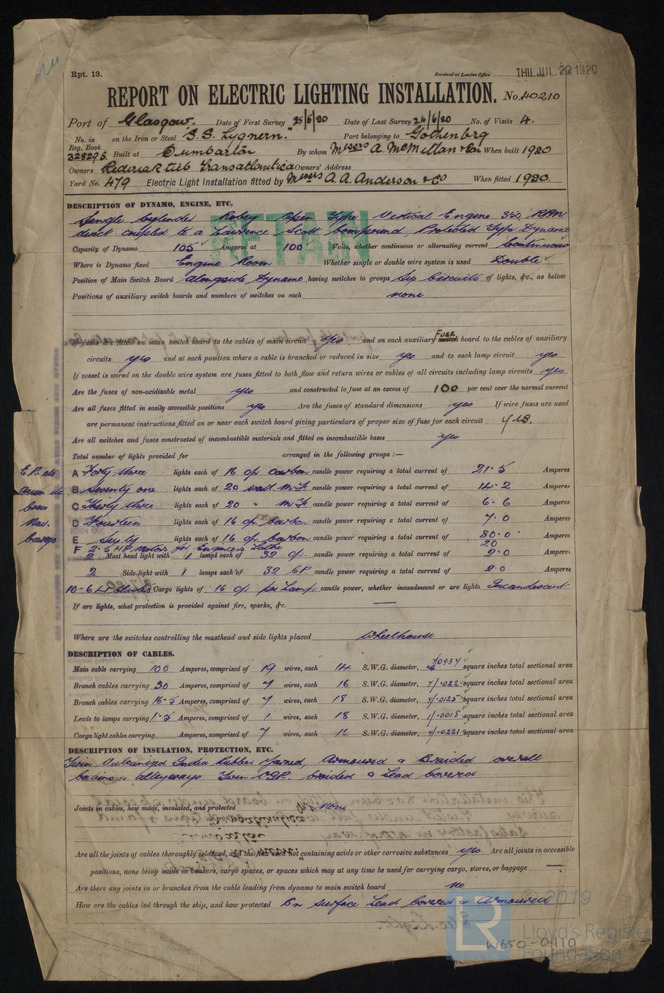 Rpt. 13.
Received at London Office THU. JUL. 29 1920
REPORT ON ELECTRIC LIGHTING INSTALLATION. No. 40210
Port of Glasgow. Date of First Survey 25/5/20 Date of Last Survey 24/6/20 No. of Visits 4.
No. in Reg. Book on the Iron or Steel S.S. Port belonging to Gothenbrg
Built at Dumbarton By whom Messrs A. McMillan & Son When built 1920
Owners Rederiaktieb Transatlantica Owners' Address
Yard No. 479 Electric Light Installation fitted by Messrs A. A. Anderson & Co When fitted 1920.
DESCRIPTION OF DYNAMO, ENGINE, ETC.
Single Cylinder Robey Open Type Vertical Engine 350 RPM
direct coupled to a Laurence Scott Compound Protected Type Dynamo
RETAIN
Capacity of Dynamo 105 Amperes at 100 Volts, whether continuous or alternating current Continuous
Where is Dynamo fixed Engine Room Whether single or double wire system is used Double
Position of Main Switch Board alongside Dynamo having switches to groups Six Circuits of lights, &c., as below
Positions of auxiliary switch boards and numbers of switches on each none
If fuses are fitted on main switch board to the cables of main circuit yes and on each auxiliary Fuse board to the cables of auxiliary
circuits yes and at each position where a cable is branched or reduced in size yes and to each lamp circuit yes
If vessel is wired on the double wire system are fuses fitted to both flow and return wires or cables of all circuits including lamp circuits yes
Are the fuses of non-oxidizable metal yes and constructed to fuse at an excess of 100 per cent over the normal current
Are all fuses fitted in easily accessible positions yes Are the fuses of standard dimensions yes If wire fuses are used
are permanent instructions fitted on or near each switch board giving particulars of proper size of fuse for each circuit yes.
Are all switches and fuses constructed of incombustible materials and fitted on incombustible bases yes
Total number of lights provided for arranged in the following groups :—
A Forty three lights each of 16 cp carbon candle power requiring a total current of 21.5 Amperes
B Seventy one lights each of 20 watt M.F. candle power requiring a total current of 14.2 Amperes
C Thirty three lights each of 20 " M.F. candle power requiring a total current of 6.6 Amperes
D Fourteen lights each of 16 cp carbon candle power requiring a total current of 7.0 Amperes
E Sixty lights each of 16 cp carbon candle power requiring a total current of 30.0 Amperes
F 2-5 HP motor for Engineers Lathe 20
2 Mast head light with 1 lamps each of 32 cp candle power requiring a total current of 2.0 Amperes
2 Side light with 1 lamps each of 32 CP candle power requiring a total current of 2.0 Amperes
10-6 Lt Cargo lights of 16 cp per Lamp candle power, whether incandescent or arc lights Incandescent
If arc lights, what protection is provided against fire, sparks, &c.
Where are the switches controlling the masthead and side lights placed Wheelhouse
DESCRIPTION OF CABLES.
Main cable carrying 100 Amperes, comprised of 19 wires, each 14 S.W.G. diameter, .0937 square inches total sectional area
Branch cables carrying 30 Amperes, comprised of 7 wires, each 16 S.W.G. diameter, .022 square inches total sectional area
Branch cables carrying 16.5 Amperes, comprised of 7 wires, each 18 S.W.G. diameter, .0125 square inches total sectional area
Leads to lamps carrying 1.5 Amperes, comprised of 1 wires, each 18 S.W.G. diameter, .0018 square inches total sectional area
Cargo light cables carrying Amperes, comprised of 7 wires, each 16 S.W.G. diameter, .0221 square inches total sectional area
DESCRIPTION OF INSULATION, PROTECTION, ETC.
Twin Vulcanized India Rubber Served, Armoured & Braided overall
Cabins & alleyways Twin V.I.R. braided & Lead Covered
Joints in cables, how made, insulated, and protected None
Are all the joints of cables thoroughly soldered, the flux used not containing acids or other corrosive substances yes. Are all joints in accessible
positions, none made in bunkers, cargo spaces, or spaces which may at any time be used for carrying cargo, stores, or baggage —
Are there any joints in or branches from the cable leading from dynamo to main switch board no
How are the cables led through the ship, and how protected On surface Lead covered & Armoured
© 2019
Lloyd's Register
Foundation
LR
W650-0110